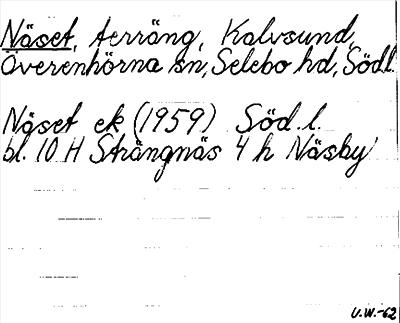 Näset, terräng, Kalvsund,
Överenhörna sn, Selebo hd, Södl.
Näset ek (1959) Söd.l.
bl. 10 H Strängnäs 4 h Näsby
U.W.-62